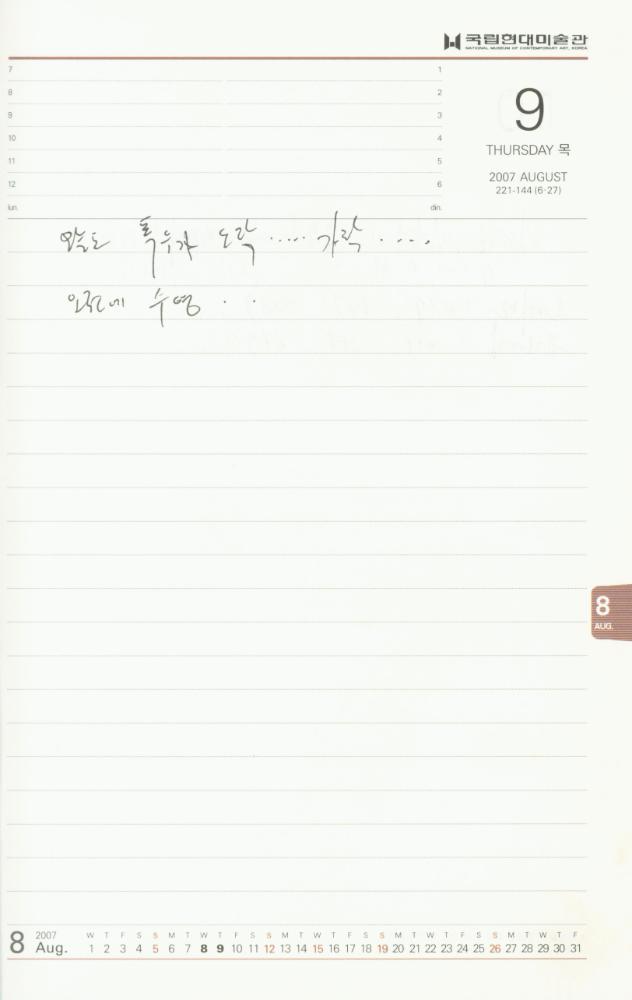 국립현대미술관
NATIONAL MUSEUM OF CONTEMPORARY ART, KOREA
7 1
8 2
9 3
10 4
11 5
12 6
lun. din.
9
THURSDAY 목
2007 AUGUST
221-144 (6-27)
오늘도 폭우가 오락 ..... 가락 ....
오전에 수영 . .
8
AUG.
8 2007 Aug.
W T F S S M T W T F S S M T W T F S S M T W T F S S M T W T F
1 2 3 4 5 6 7 8 9 10 11 12 13 14 15 16 17 18 19 20 21 22 23 24 25 26 27 28 29 30 31